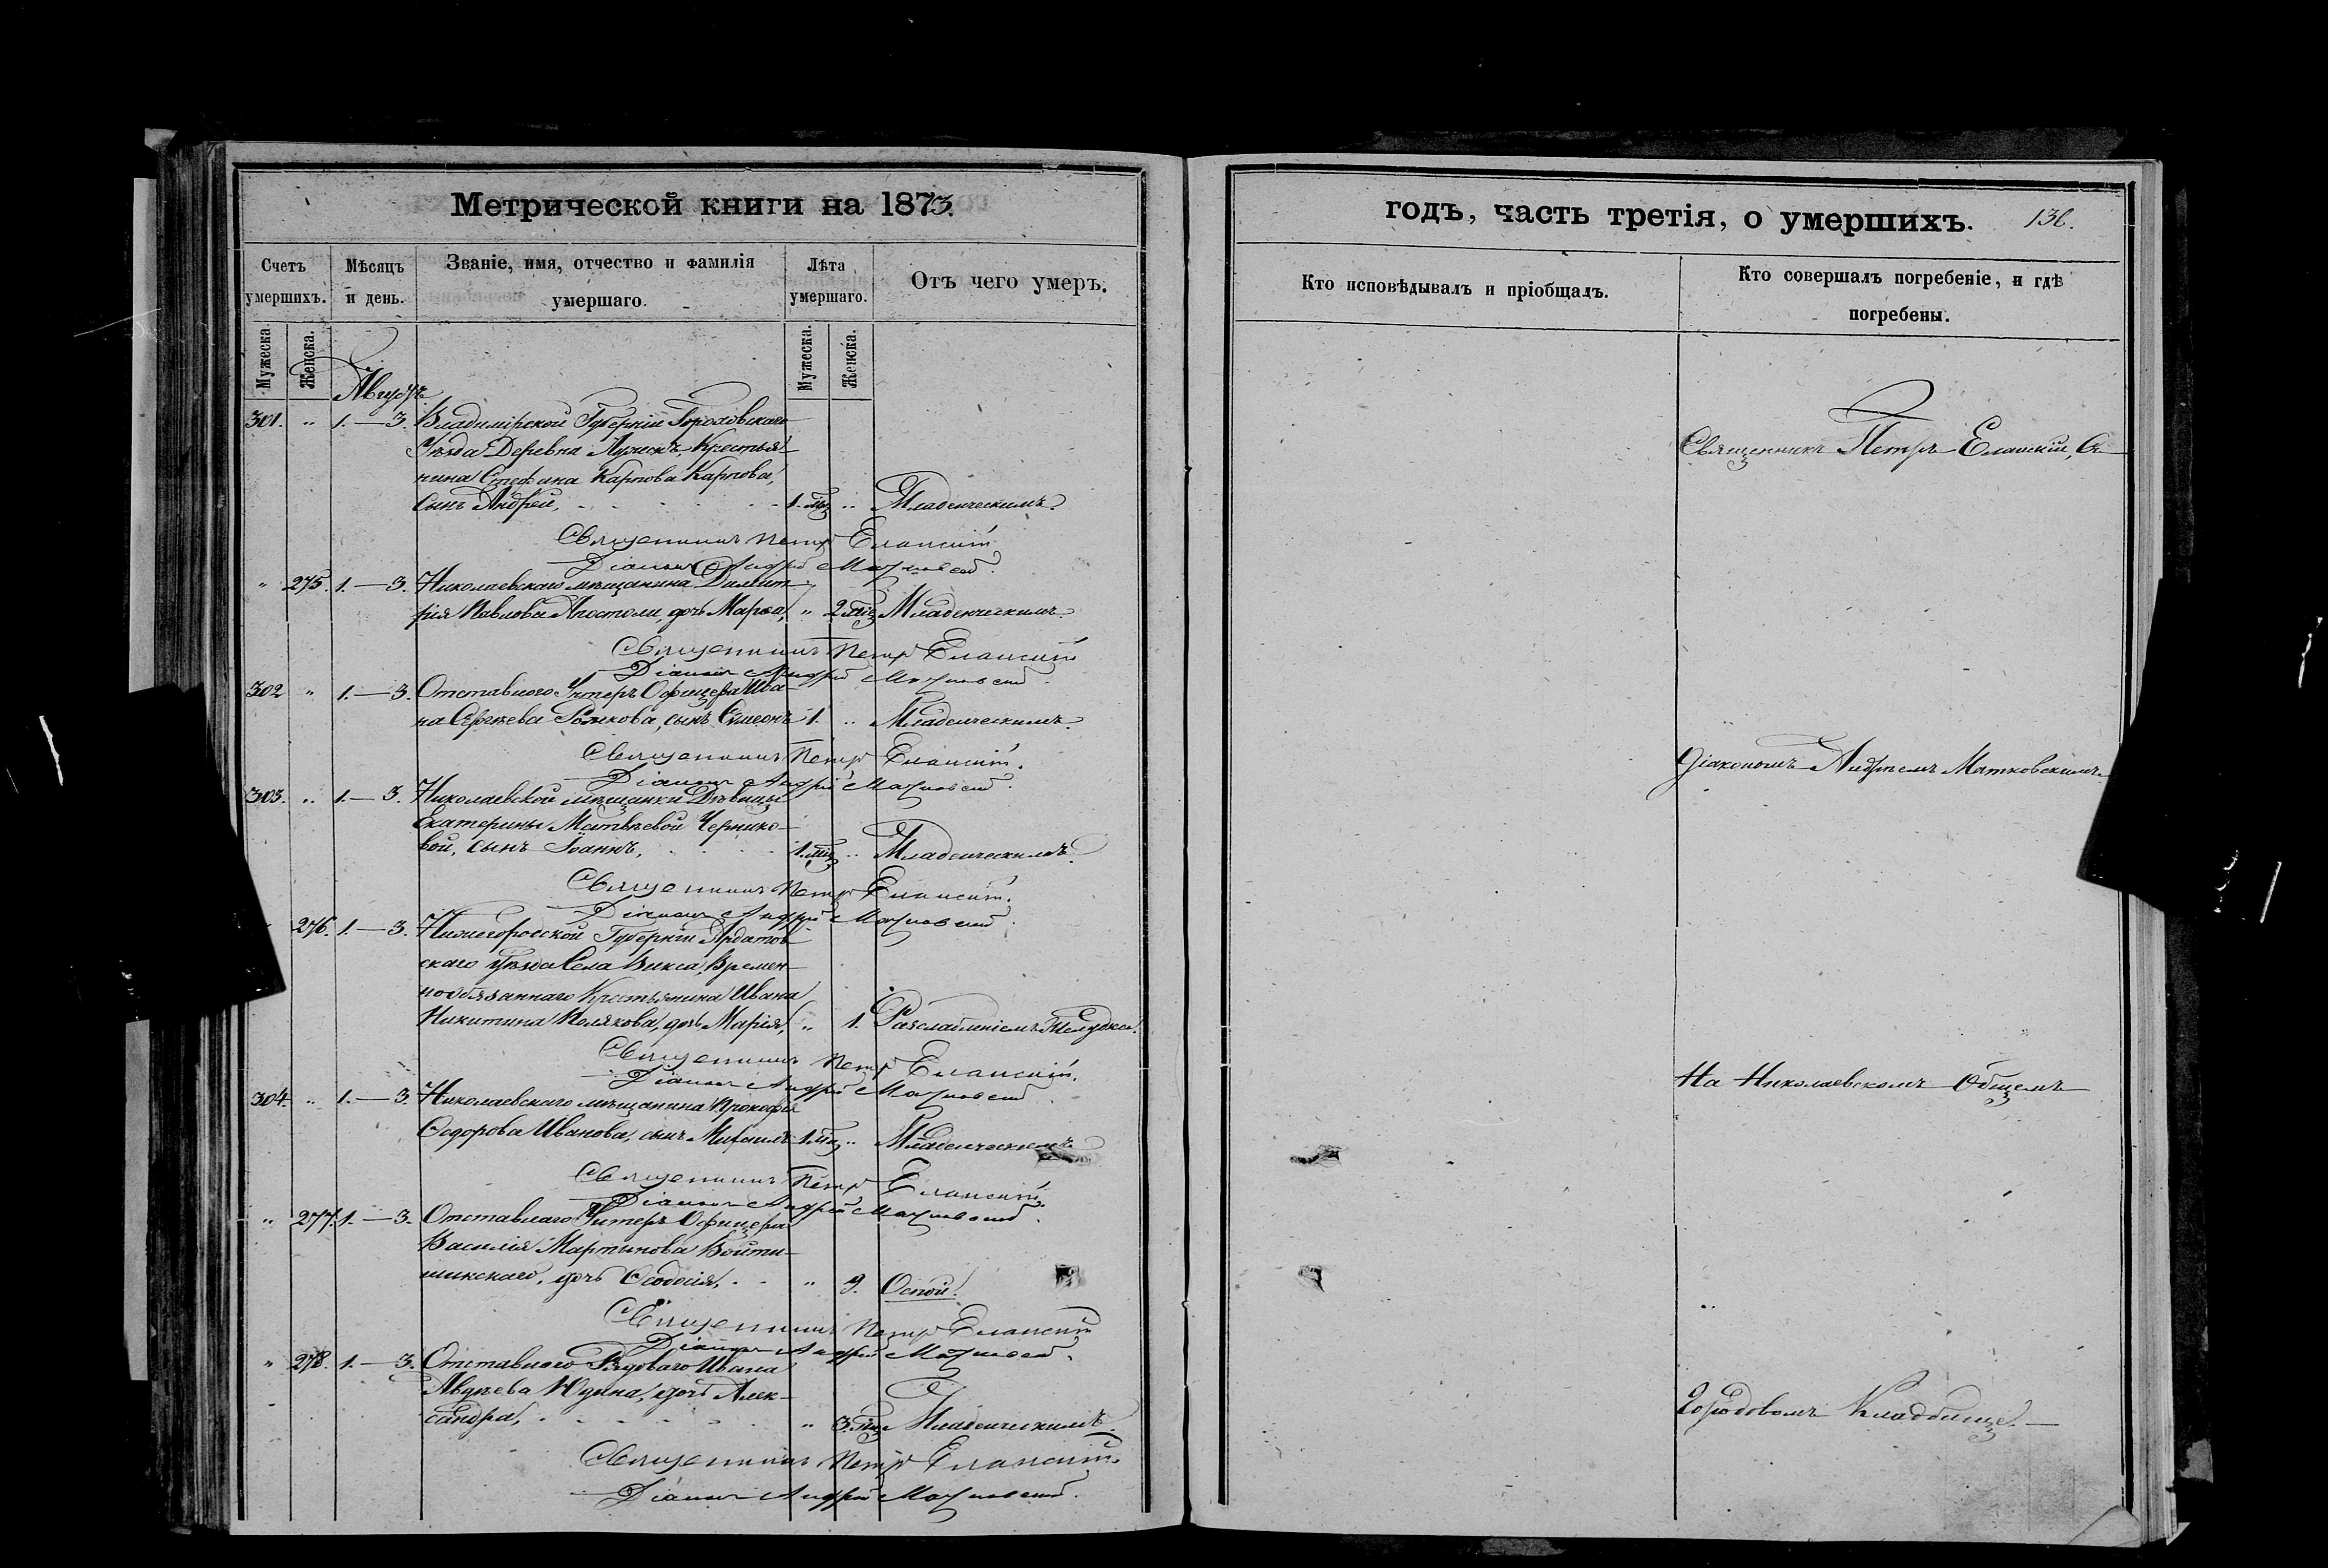 Метрической книги на 1873.
Счетъ умершихъ.
Мѣсяцъ и день.
Званіе, имя, отчество и фамилія умершаго.
Лѣта умершаго.
Отъ чего умеръ.
Мужеска. Женска.
Мужеска. Женска.
Августъ
301. " 1.—3. Владимірской Губерніи Гороховскаго
Уѣзда Деревни Крестья-
нина Стефана Карпова Карпова,
сынъ Андрей, 1. мѣ. " Младенческимъ.
Священникъ Петръ Еланскій
Діаконъ Андрей Матковскій.
" 275. 1.—3. Николаевскаго мѣщанина Димит-
рія Павлова Апостоли, дочь Марѳа, " 2 мѣ. Младенческимъ.
Священникъ Петръ Еланскій
Діаконъ Андрей Матковскій.
302 " 1.—3. Отставного Унтеръ Офицера Ива-
на Сергѣева сынъ Симеонъ 1. " Младенческимъ.
Священникъ Петръ Еланскій.
Діаконъ Андрей Матковскій.
303. " 1.—3. Николаевской мѣщанки Дѣвицы
Екатерины Матвѣевой Чернико-
вой, сынъ Іоаннъ, 1. мѣ. " Младенческимъ.
Священникъ Петръ Еланскій.
Діаконъ Андрей Матковскій.
276. 1.—3. Нижегородской Губерніи Ардатов-
скаго уѣзда Села Выкса, Времен-
нообязаннаго Крестьянина Ивана
Никитина Полякова, дочь Марія, " 1. Разслабленіемъ Желудка.
Священникъ Петръ Еланскій.
Діаконъ Андрей Матковскій.
304. " 1.—3. Николаевскаго мѣщанина Прокофія
Ѳедорова Иванова, сынъ Михаилъ 1. мѣ. " Младенческимъ
Священникъ Петръ Еланскій.
Діаконъ Андрей Матковскій.
" 277. 1.—3. Отставнаго Унтеръ Офицера
Василія Мартынова Войти-
шинскаго, дочь Ѳеодосія, " 9. Оспой.
Священникъ Петръ Еланскій
Діаконъ Андрей Матковскій.
" 278. 1.—3. Отставного Рядоваго Ивана
Авдѣева Юдина, дочь Алек-
сандра, " 3. мѣ. Младенческимъ.
Священникъ Петръ Еланскій.
Діаконъ Андрей Матковскій.
годъ, часть третія, о умершихъ. 136.
Кто исповѣдывалъ и пріобщалъ.
Кто совершалъ погребеніе, и гдѣ погребены.
Священникъ Петръ Еланскій, съ
Діакономъ Андреемъ Матковскимъ
На Николаевскомъ Общемъ
Городовомъ Кладбище.—